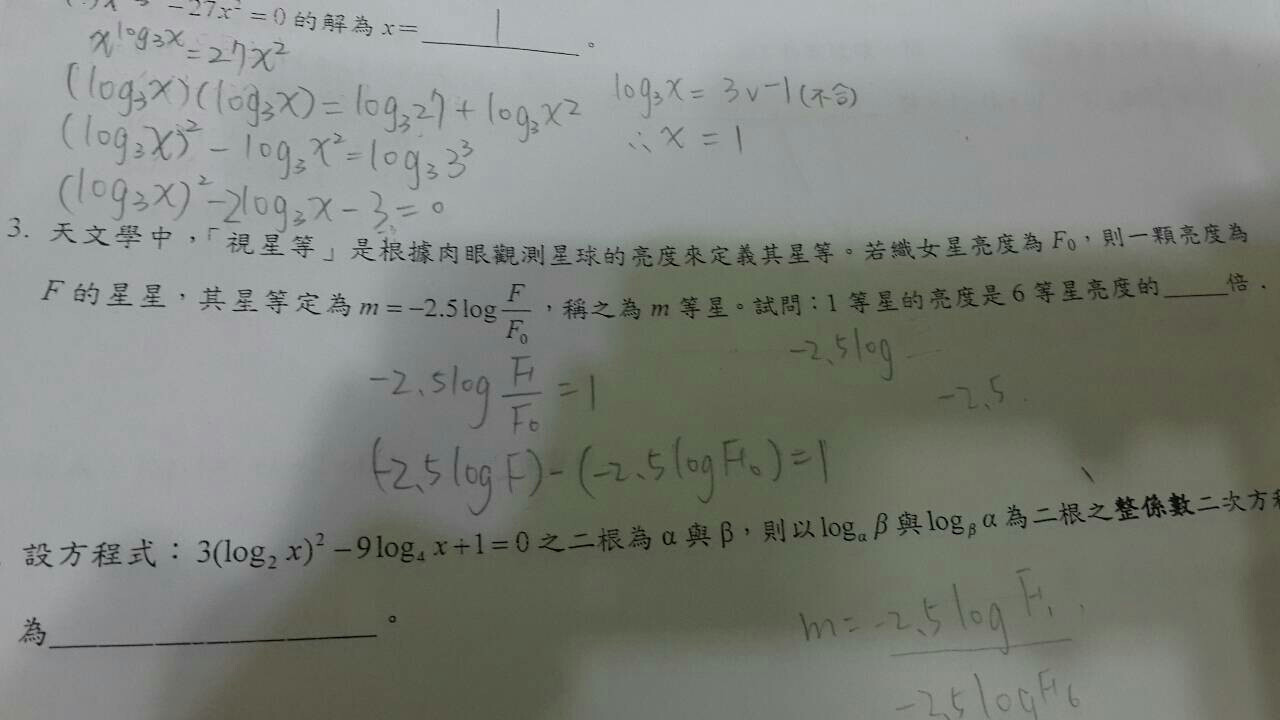 -27x²=0的解為x= 1 。
x^{log₃x}=27x²
(log₃x)(log₃x)=log₃27+log₃x²
log₃x=3v-1(不合)
(log₃x)²-log₃x²=log₃3³
∴x=1
(log₃x)²-2log₃x-3=0
3. 天文學中,「視星等」是根據肉眼觀測星球的亮度來定義其星等。若織女星亮度為F₀,則一顆亮度為
F的星星,其星等定為m=-2.5log F/F₀,稱之為m等星。試問:1等星的亮度是6等星亮度的_____倍.
-2.5log
-2.5log F₁/F₀=1
-2.5
(-2.5logF)-(-2.5logF₀)=1
設方程式:3(log₂x)²-9log₄x+1=0之二根為α與β,則以log_αβ與log_βα為二根之整係數二次方程
為_____。
m=-2.5logF₁
-2.5logF₆